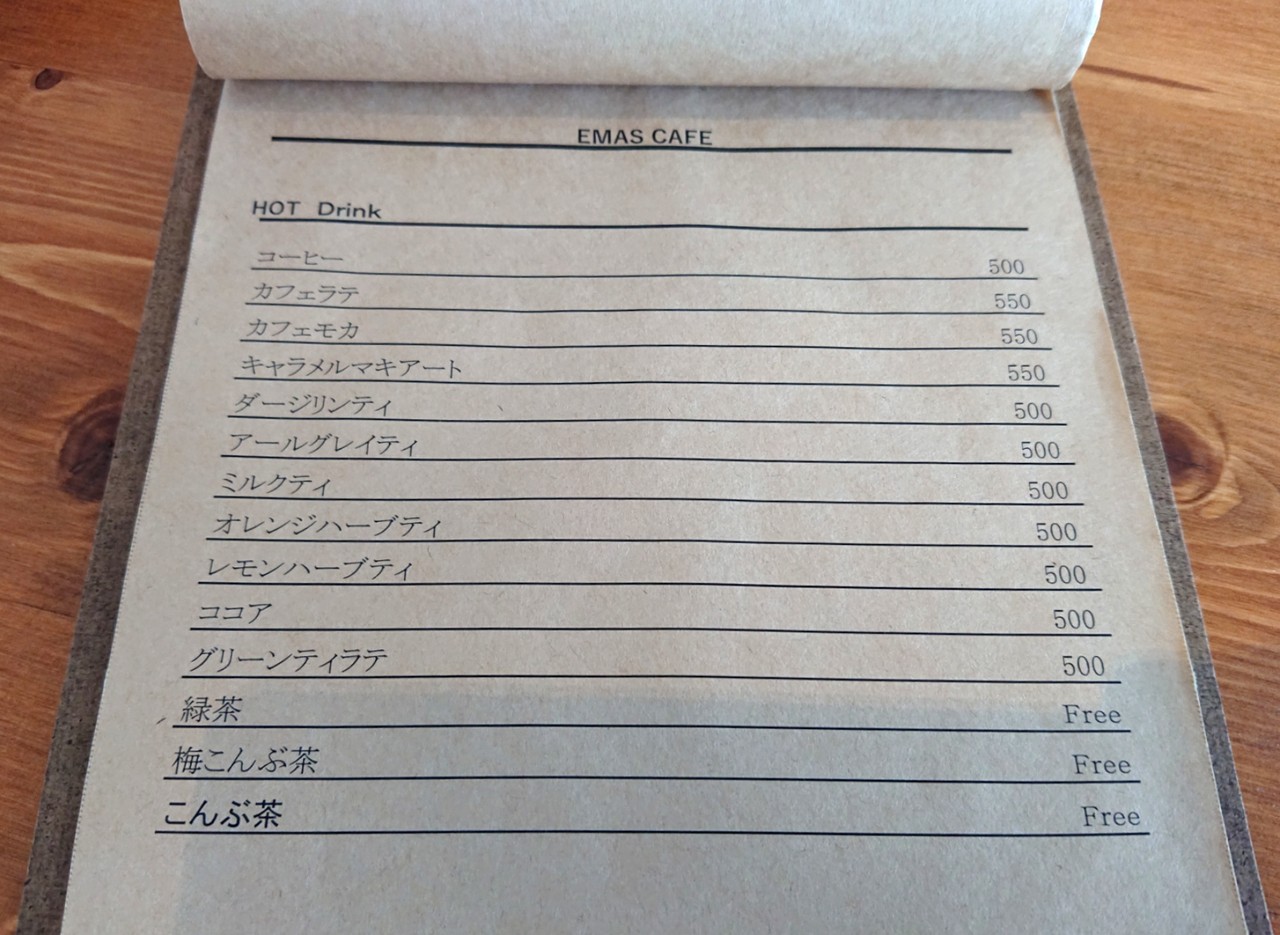 EMAS CAFE
HOT Drink
コーヒー 500
カフェラテ 550
カフェモカ 550
キャラメルマキアート 550
ダージリンティ 500
アールグレイティ 500
ミルクティ 500
オレンジハーブティ 500
レモンハーブティ 500
ココア 500
グリーンティラテ 500
緑茶 Free
梅こんぶ茶 Free
こんぶ茶 Free